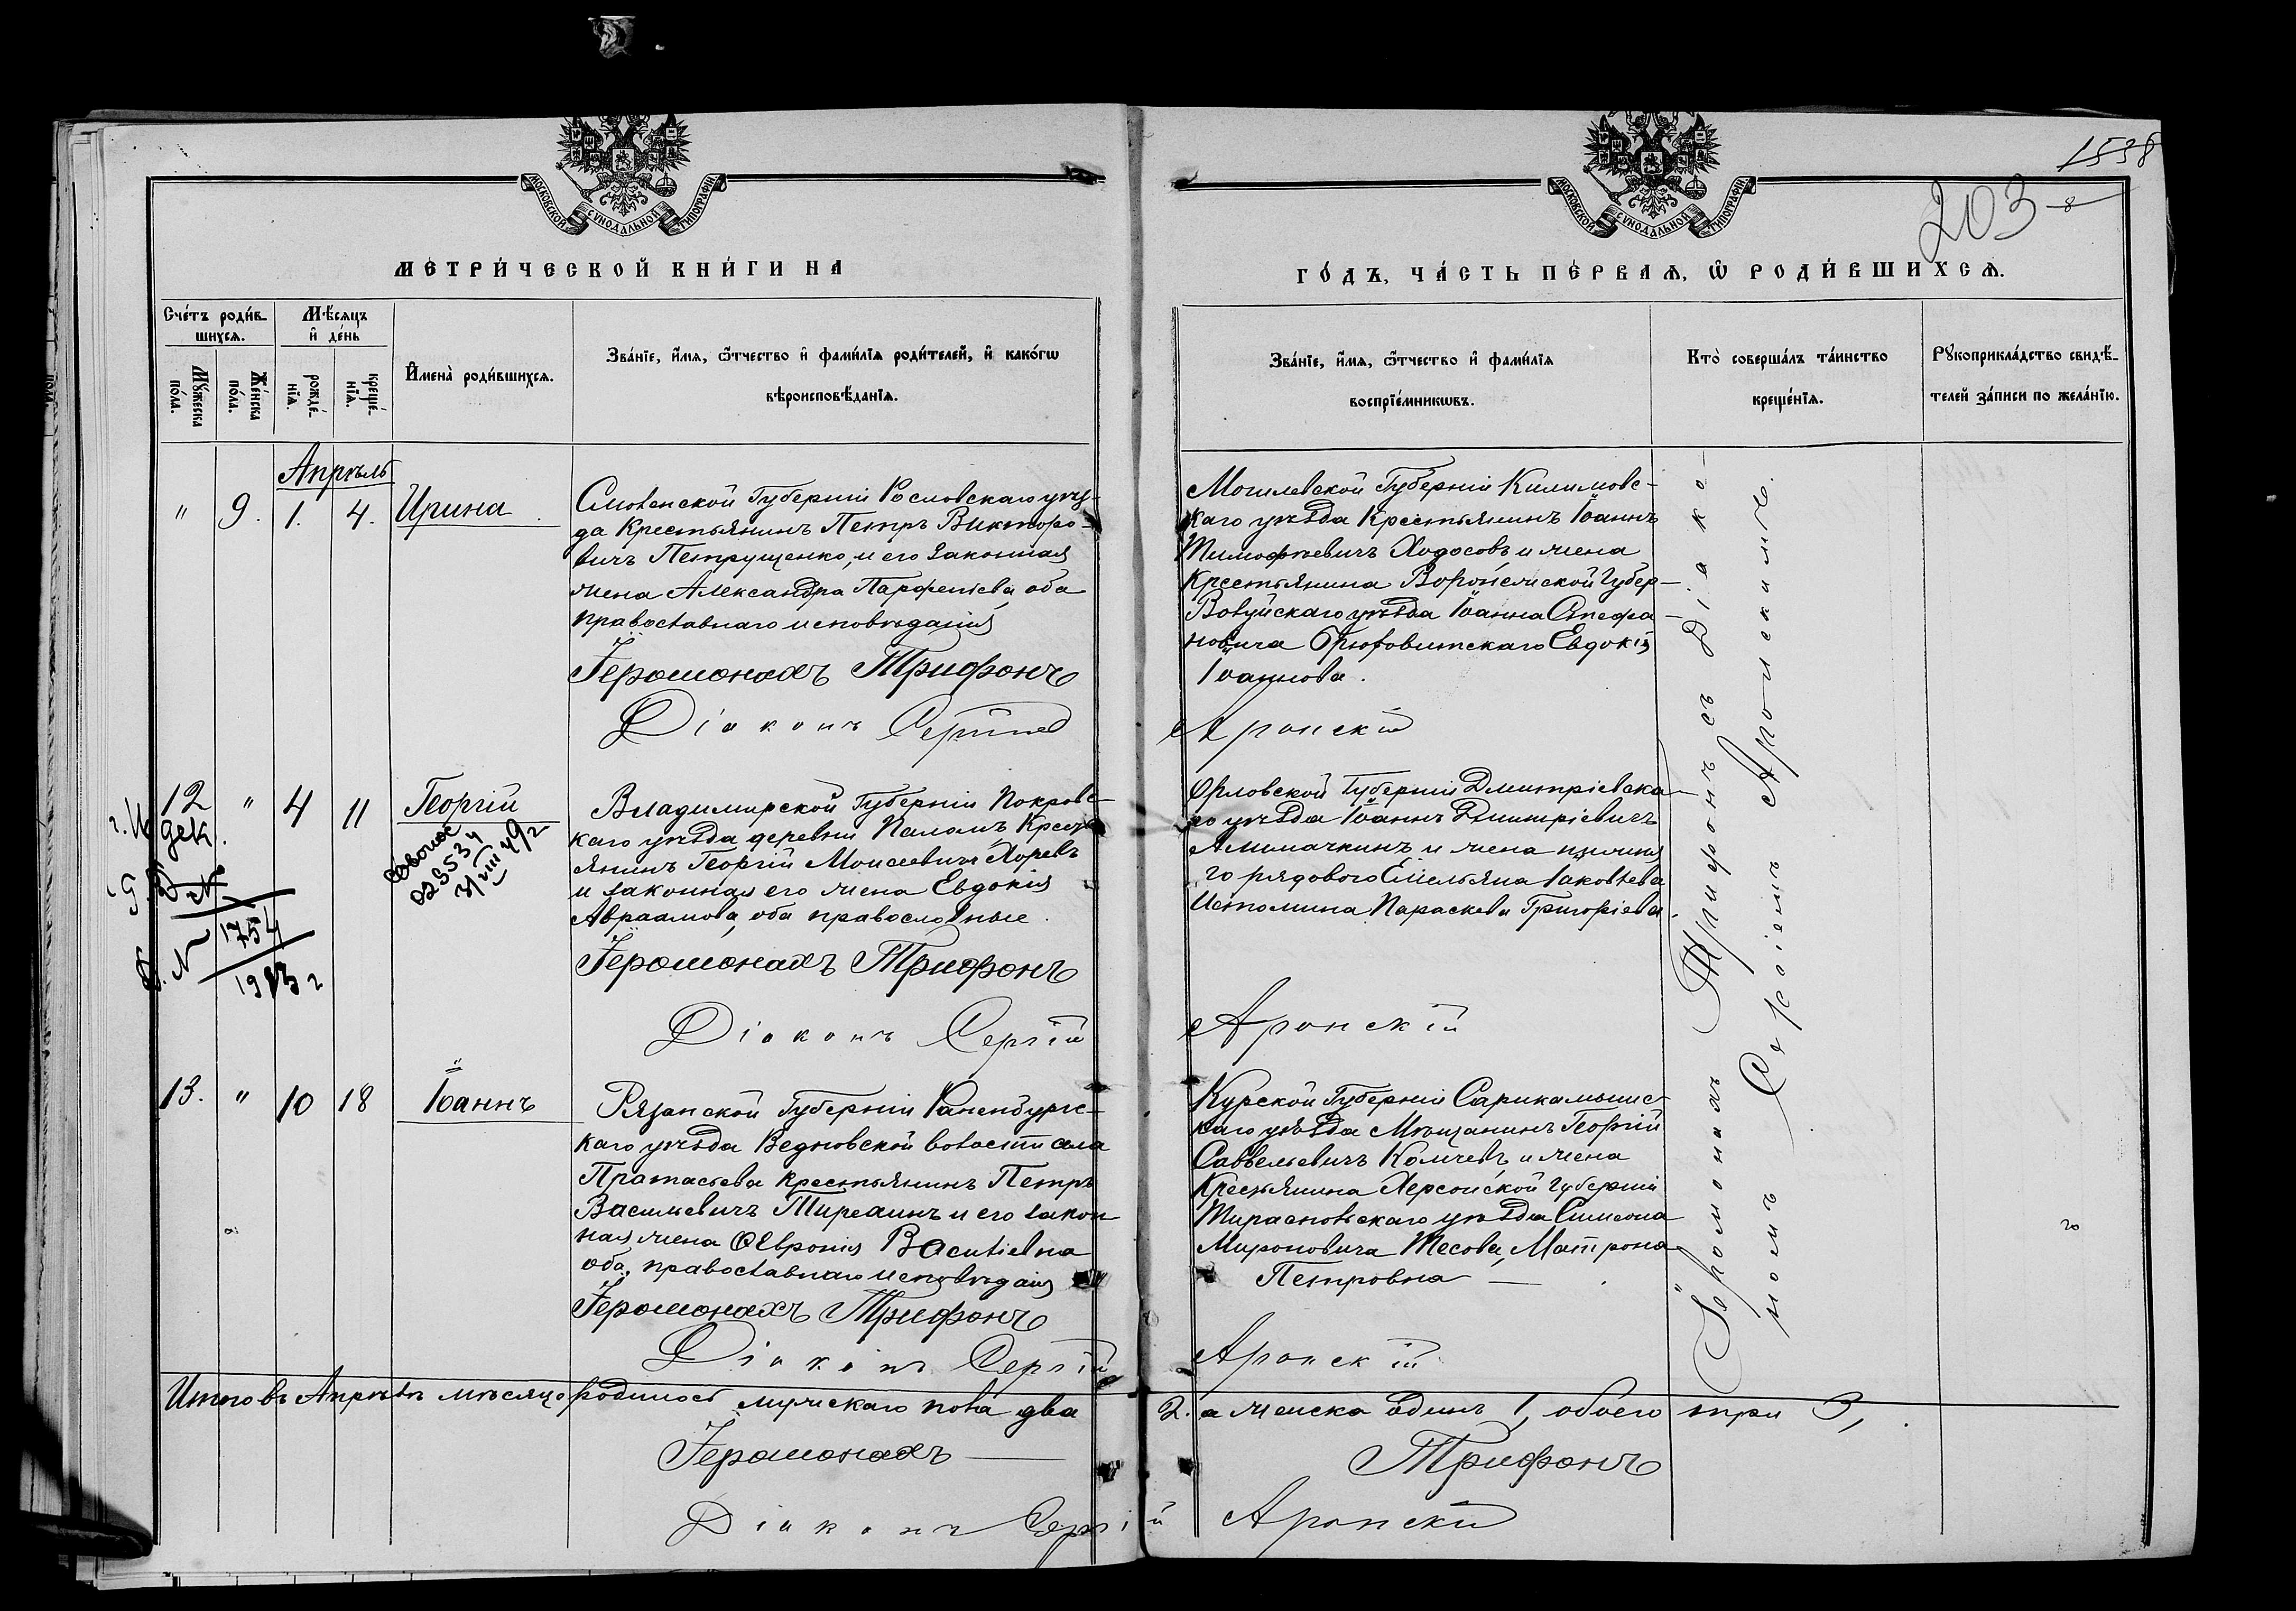 1538
203
МОСКОВСКОЙ СѴНОДАЛЬНОЙ ТИПОГРАФІИ
МОСКОВСКОЙ СѴНОДАЛЬНОЙ ТИПОГРАФІИ
МЕТРИ́ЧЕСКОЙ КНИ́ГИ НА
ГО́ДЪ, ЧА́СТЬ ПЕ́РВАѦ, Ѽ РОДИ́ВШИХСѦ.
Сче́тъ роди́в-
шихсѧ.
Мѣ́сѧцъ
и҆ де́нь
Мꙋ́жеска
по́ла.
Же́нска
по́ла.
рожде́-
нїѧ.
креще́-
нїѧ.
И҆мена̀ роди́вшихсѧ.
Зва́нїе, и҆́мѧ, ѻ҆́тчество и҆ фами́лїѧ роди́телей, и҆ како́гѡ
вѣроисповѣ́данїѧ.
Зва́нїе, и҆́мѧ, ѻ҆́тчество и҆ фами́лїѧ
воспрїе́мникѡвъ.
Кто̀ соверша́лъ та́инство
креще́нїѧ.
Рꙋкоприкла́дство свидѣ́-
телей за́писи по жела́нїю.
Апрѣль
" 9. 1. 4. Ирина
Смоленской Губерніи Рословскаго уѣз-
да Крестьянинъ Петръ Викторо-
вичъ Петрущенко, и его законная
жена Александра Парфеніева, оба
православнаго исповѣданія
Іеромонахъ Трифонъ
Діаконъ Сергій
Могилевской Губерніи Климовс-
каго уѣзда Крестьянинъ Іоаннъ
Тимофѣевичъ Ходосовъ и жена
Крестьянина Воронежской Губер-
Валуйскаго уѣзда Іоанна Стефа-
новича Евдокія
Іоаннова.
Аронскій
12 " 4 11 Георгій
дек.
02353
31/VIII 49г
1754
1913 г
Владимирской Губерніи Покровс-
каго уѣзда деревни Крест-
янинъ Георгій Моисеевичъ Хоревъ
и законная его жена Евдокія
Авраамова, оба православные.
Іеромонахъ Трифонъ
Діаконъ Сергій
Орловской Губерніи Дмитріевска-
го уѣзда Іоаннъ Дмитріевичъ
Алимачкинъ и жена
го рядового Емельяна Іаковлева
Истомина Параскева Григоріева.
Аронскій
13. " 10 18 Іоаннъ
Рязанской Губерніи Раненбургс-
каго уѣзда Ведновской волости села
Пратасьева Крестьянинъ Петръ
Васильевичъ и его закон-
ная жена Февронія Василіевна
оба православнаго исповѣданія
Іеромонахъ Трифонъ
Діаконъ Сергій
Курской Губерніи Сарикамышс-
каго уѣзда Мѣщанинъ Георгій
Саввельевичъ и жена
Крестьянина Херсонской Губерніи
Тираспольскаго уѣзда Симеона
Мироновича Тесова, Матрона
Петровна
Аронскій
Іеромонахъ Трифонъ съ Діако-
номъ Сергіемъ Аронскимъ.
Итого въ Апрѣлѣ мѣсяцѣ родилось мужскаго пола два 2. а женска одинъ 1, обоего три 3,
Іеромонахъ Трифонъ
Діаконъ Сергій Аронскій